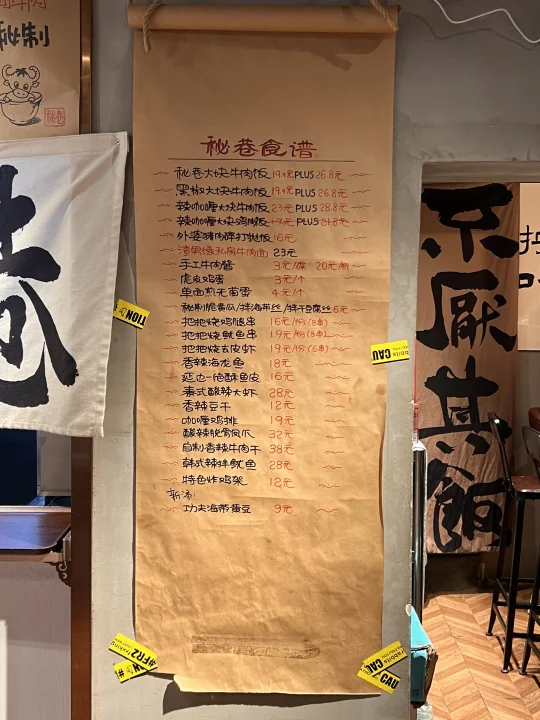 秘制
秘巷食谱
秘巷大块牛肉饭19.8元PLUS26.8元
黑椒大块牛肉饭19.8元PLUS26.8元
辣咖喱大块牛肉饭23元PLUS28.8元
辣咖喱大块鸡肉饭 PLUS
外婆猪肉碎打抛饭16元
私房牛肉面 23元
手工牛肉酱 3元/碟 20元/瓶
虎皮鸡蛋 3元/个
单面煎无菌蛋 4元/个
秘制脆黄瓜/拌海带丝/拌干豆腐丝6元
把把烧鸡腿串 16元/份(8串)
把把烧鱿鱼串 19元/份(8串)
把把烧去皮虾 19元/份(6串)
香辣海龙鱼 18元
延边一绝酥鱼皮 16元
泰式酸辣大虾 28元
香辣豆干 12元
咖喱鸡排 19元
酸辣脱骨凤爪 32元
自制香辣牛肉干 38元
韩式辣拌鱿鱼 28元
特色炸鸡架 12元
新添:
功夫海带黄豆 9元
不厌其饭
巷
TION
CAU
#FRZ
CAU
CAU